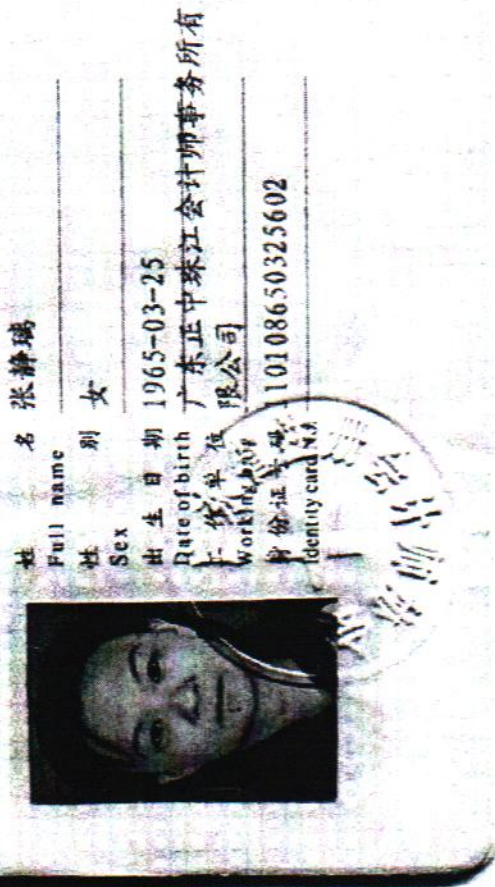 姓 名 张静璃
Full name
性 别 女
Sex
出生日期 1965-03-25
Date of birth
工作单位 广东正中珠江会计师事务所有
限公司
Working unit
身份证号码 110108650325602
Identity card No.